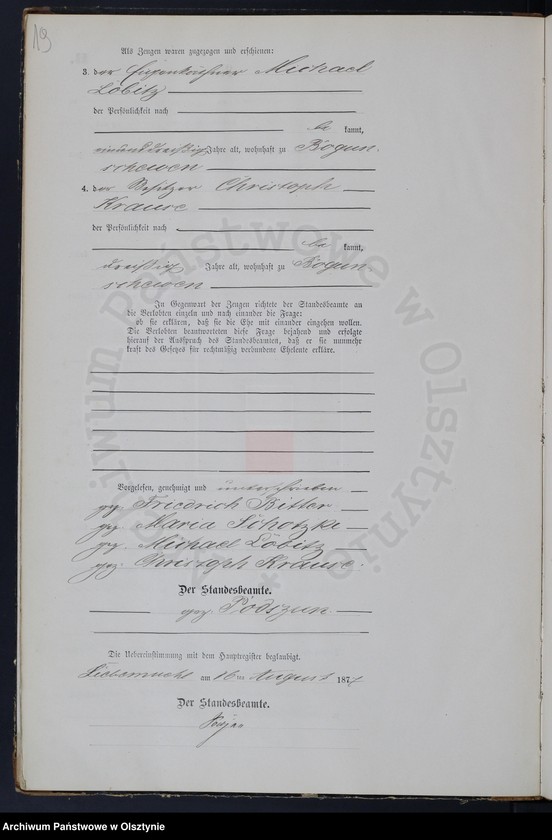 19
Als Zeugen waren zugezogen und erschienen:
3. der Eigenkäthner Michael
Löbitz
der Persönlichkeit nach
be kannt,
neununddreißig Jahre alt, wohnhaft zu Bogun-
schewen
4. der Besitzer Christoph
Krause
der Persönlichkeit nach
be kannt,
dreißig Jahre alt, wohnhaft zu Bogun-
schewen
In Gegenwart der Zeugen richtete der Standesbeamte an
die Verlobten einzeln und nach einander die Frage:
ob sie erklären, daß sie die Ehe mit einander eingehen wollen.
Die Verlobten beantworteten diese Frage bejahend und erfolgte
hierauf der Ausspruch des Standesbeamten, daß er sie nunmehr
kraft des Gesetzes für rechtmäßig verbundene Eheleute erkläre.
Vorgelesen, genehmigt und unterschrieben
gez. Friedrich Bitter
gez. Maria
gez. Michael Löbitz
gez. Christoph Krause.
Der Standesbeamte.
gez. Podszun
Die Uebereinstimmung mit dem Hauptregister beglaubigt.
am 16ten August 187
Der Standesbeamte.
Archiwum Państwowe w Olsztynie
Archiwum Państwowe w Olsztynie